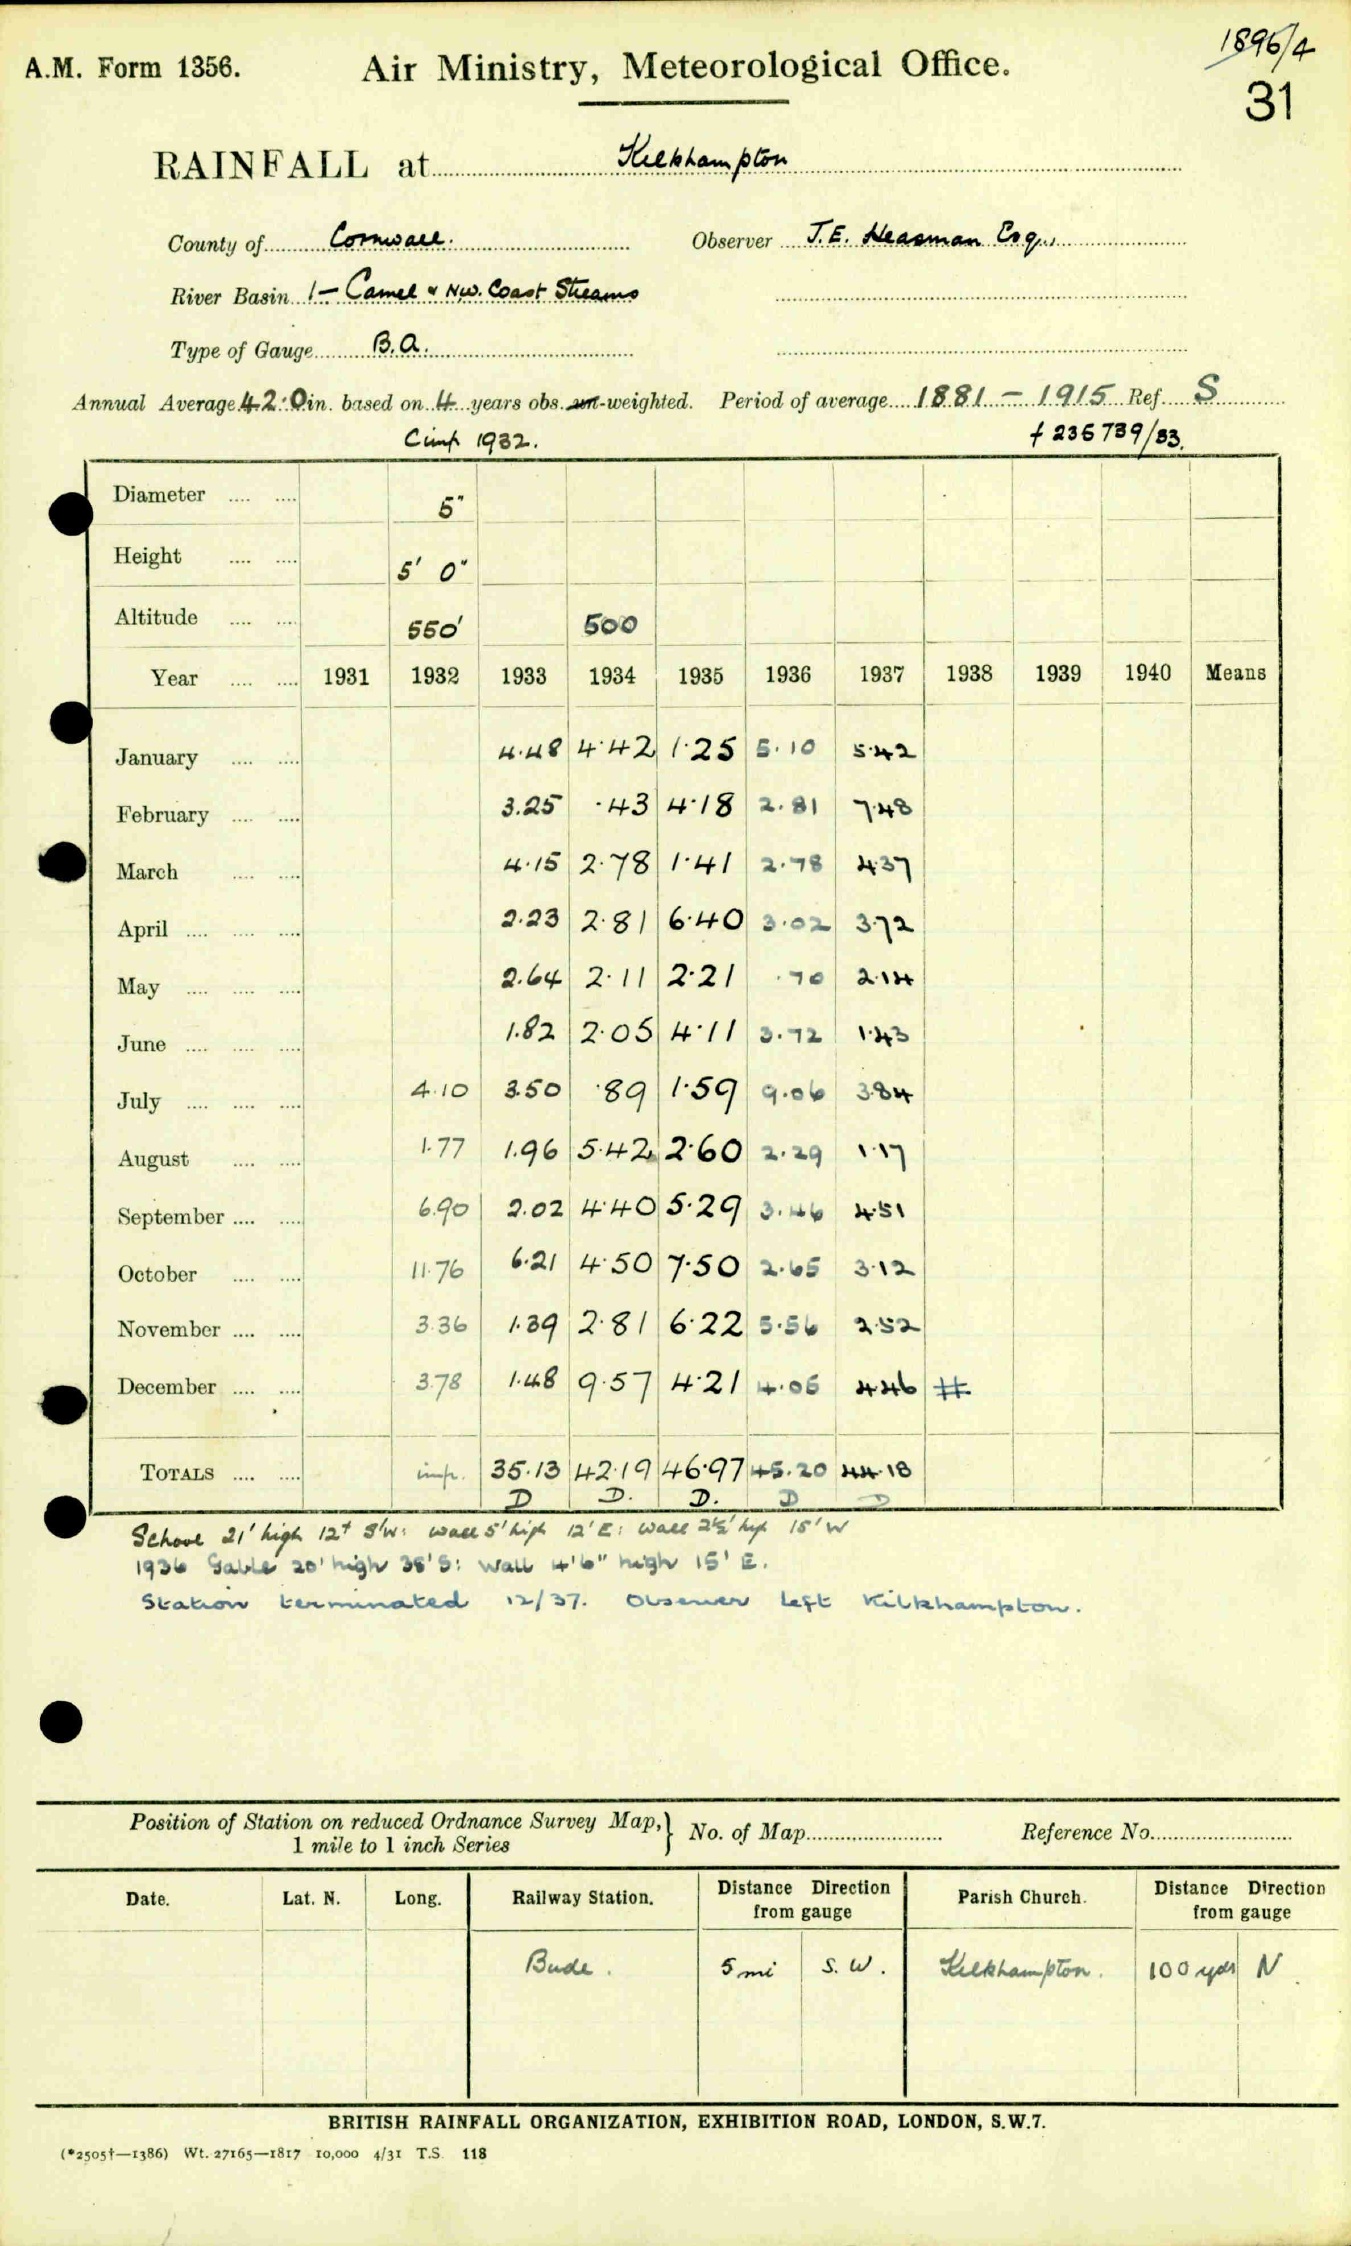 1896/4
A.M. Form 1356. Air Ministry, Meteorological Office.
31
RAINFALL at Kilkhampton
County of Cornwall. Observer J.E. Heasman Esq.,
River Basin 1— Camel & N.W. Coast Streams
Type of Gauge B.A.
Annual Average 42.0 in. based on 4 years obs. un-weighted. Period of average 1881 – 1915 Ref. S
1932. 236739/33.
Diameter .... .... 5"
Height .... .... 5' 0"
Altitude .... .... 550' 500
Year .... .... 1931 1932 1933 1934 1935 1936 1937 1938 1939 1940 Means
January .... .... 4.48 4.42 1.25 5.10 5.42
February .... .... 3.25 .43 4.18 2.81 7.48
March .... .... 4.15 2.78 1.41 2.78 4.37
April .... .... .... 2.23 2.81 6.40 3.02 3.72
May .... .... .... 2.64 2.11 2.21 .70 2.14
June .... .... .... 1.82 2.05 4.11 3.72 1.43
July .... .... .... 4.10 3.50 .89 1.59 9.06 3.84
August .... .... 1.77 1.96 5.42 2.60 2.29 1.17
September .... .... 6.90 2.02 4.40 5.29 3.46 4.51
October .... .... 11.76 6.21 4.50 7.50 2.65 3.12
November .... .... 3.36 1.39 2.81 6.22 5.56 2.52
December .... .... 3.78 1.48 9.57 4.21 4.05 4.46 #
TOTALS .... .... imp. 35.13 42.19 46.97 45.20 44.18
D D. D. D D
School 21' high 12' S'W: wall 5' high 12' E: wall 2½' high 15' W
1936 Gable 20' high 38' S: Wall 4'6" high 15' E.
Station terminated 12/37. Observer left Kilkhampton.
Position of Station on reduced Ordnance Survey Map, } No. of Map Reference No.
1 mile to 1 inch Series
Date. Lat. N. Long. Railway Station. Distance Direction from gauge Parish Church. Distance Direction from gauge
Bude. 5 mi S.W. Kilkhampton. 100 yds N.
BRITISH RAINFALL ORGANIZATION, EXHIBITION ROAD, LONDON, S.W.7.
(*2505†—1386) Wt. 27165—1817 10,000 4/31 T.S. 118